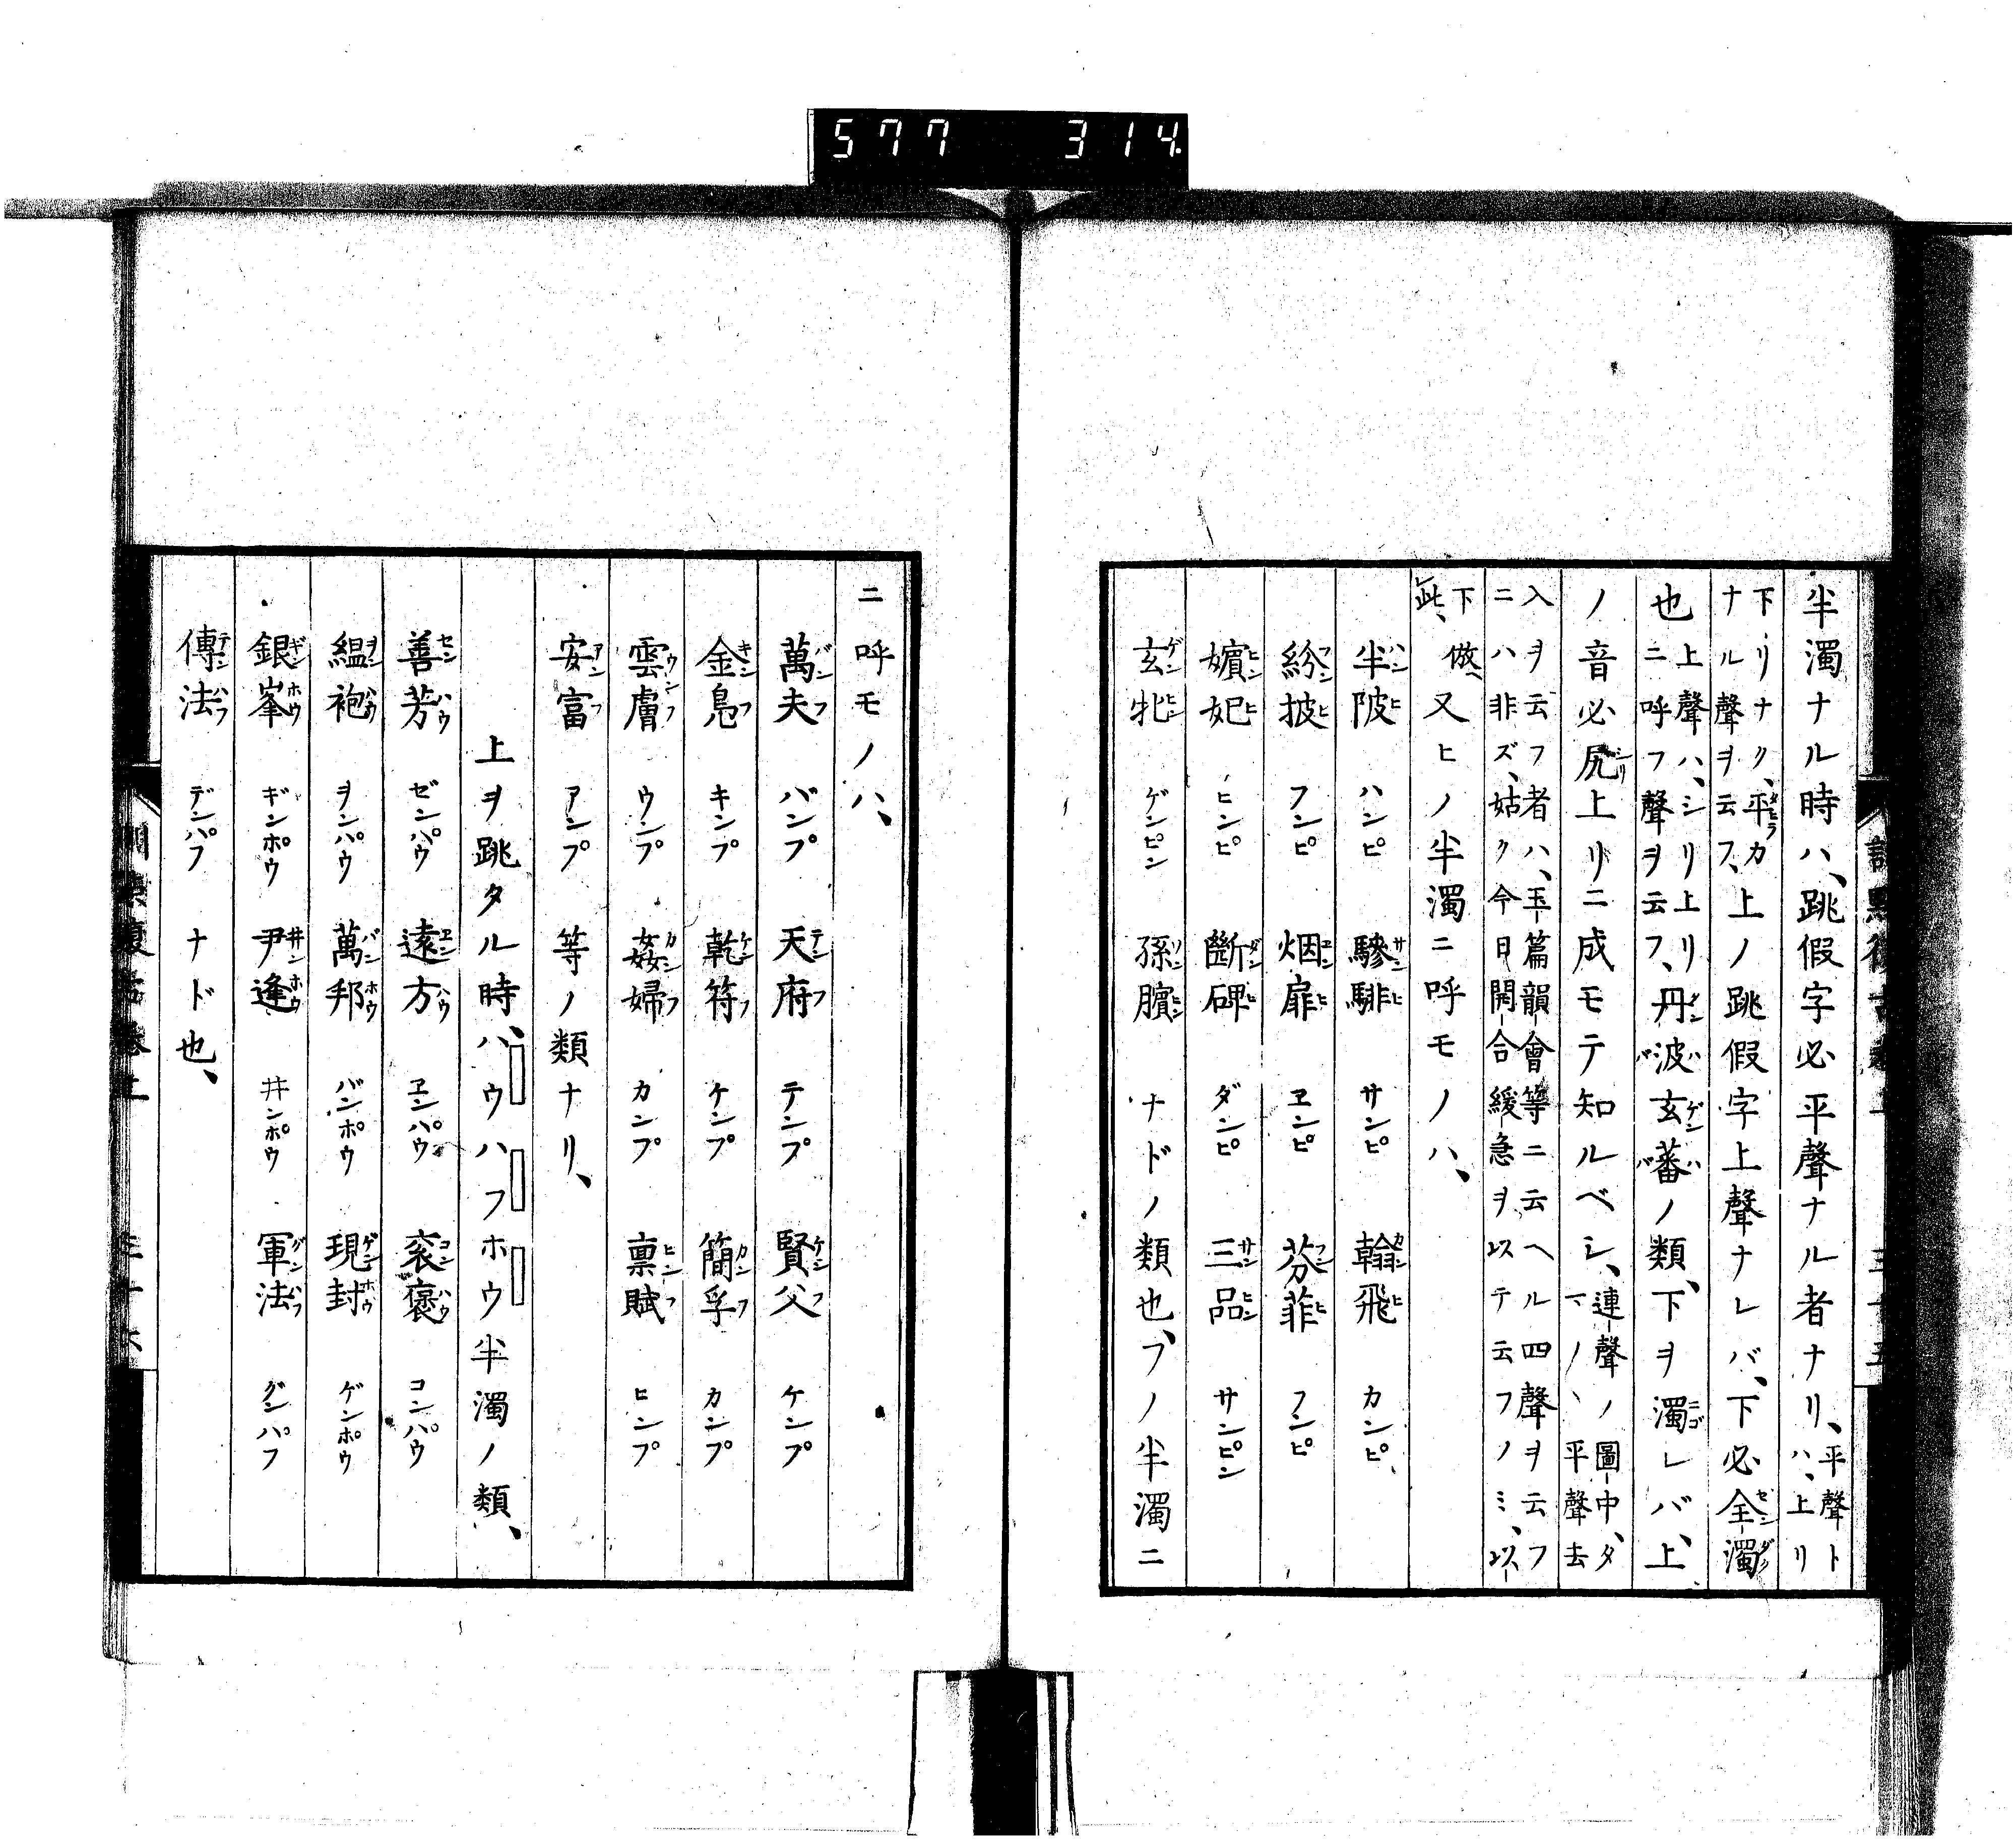 577 314
半濁ナル時ハ、跳假字必平聲ナル者ナリ、平聲トハ、上リ
下リナク、平カナル聲ヲ云フ、上ノ跳假字上聲ナレバ、下必全濁
也上聲ハ、シリ上リニ呼フ聲ヲ云フ、丹波玄蕃ノ類、下ヲ濁レバ、上
ノ音必尻上リニ成モテ知ルベシ、連聲ノ圖中、タヾノ、平聲去
入ヲ云フ者ハ、玉篇韻會等ニ云ヘル四聲ヲ云フニハ非ズ、姑ク今日開合緩急ヲ以テ云フノミ、以
下倣此、又ヒノ半濁ニ呼モノハ、
半陂 ハンピ 驂騑 サンピ 翰飛 カンピ
紛披 フンピ 烟扉 ヱンピ 芬菲 フンピ
嬪妃 ヒンピ 斷碑 ダンピ 三品 サンピン
玄牝 ゲンピン 孫臏 ナドノ類也、フノ半濁ニ
ニ呼モノハ、
萬夫 バンプ 天府 テンプ 賢父 ケンプ
金鳧 キンプ 乾符 ケンプ 簡孚 カンプ
雲膚 ウンプ 姦婦 カンプ 禀賦 ヒンプ
安富 アンプ 等ノ類ナリ、
上ヲ跳タル時、ハウハフホウ半濁ノ類、
善芳 ゼンパウ 遠方 ヱンパウ 衮褒 コンパウ
縕袍 ヲンパウ 萬邦 バンポウ 現封 ゲンポウ
銀峯 ギンポウ 尹逢 井ンポウ 軍法 グンパフ
傳法 デンパフ ナド也、